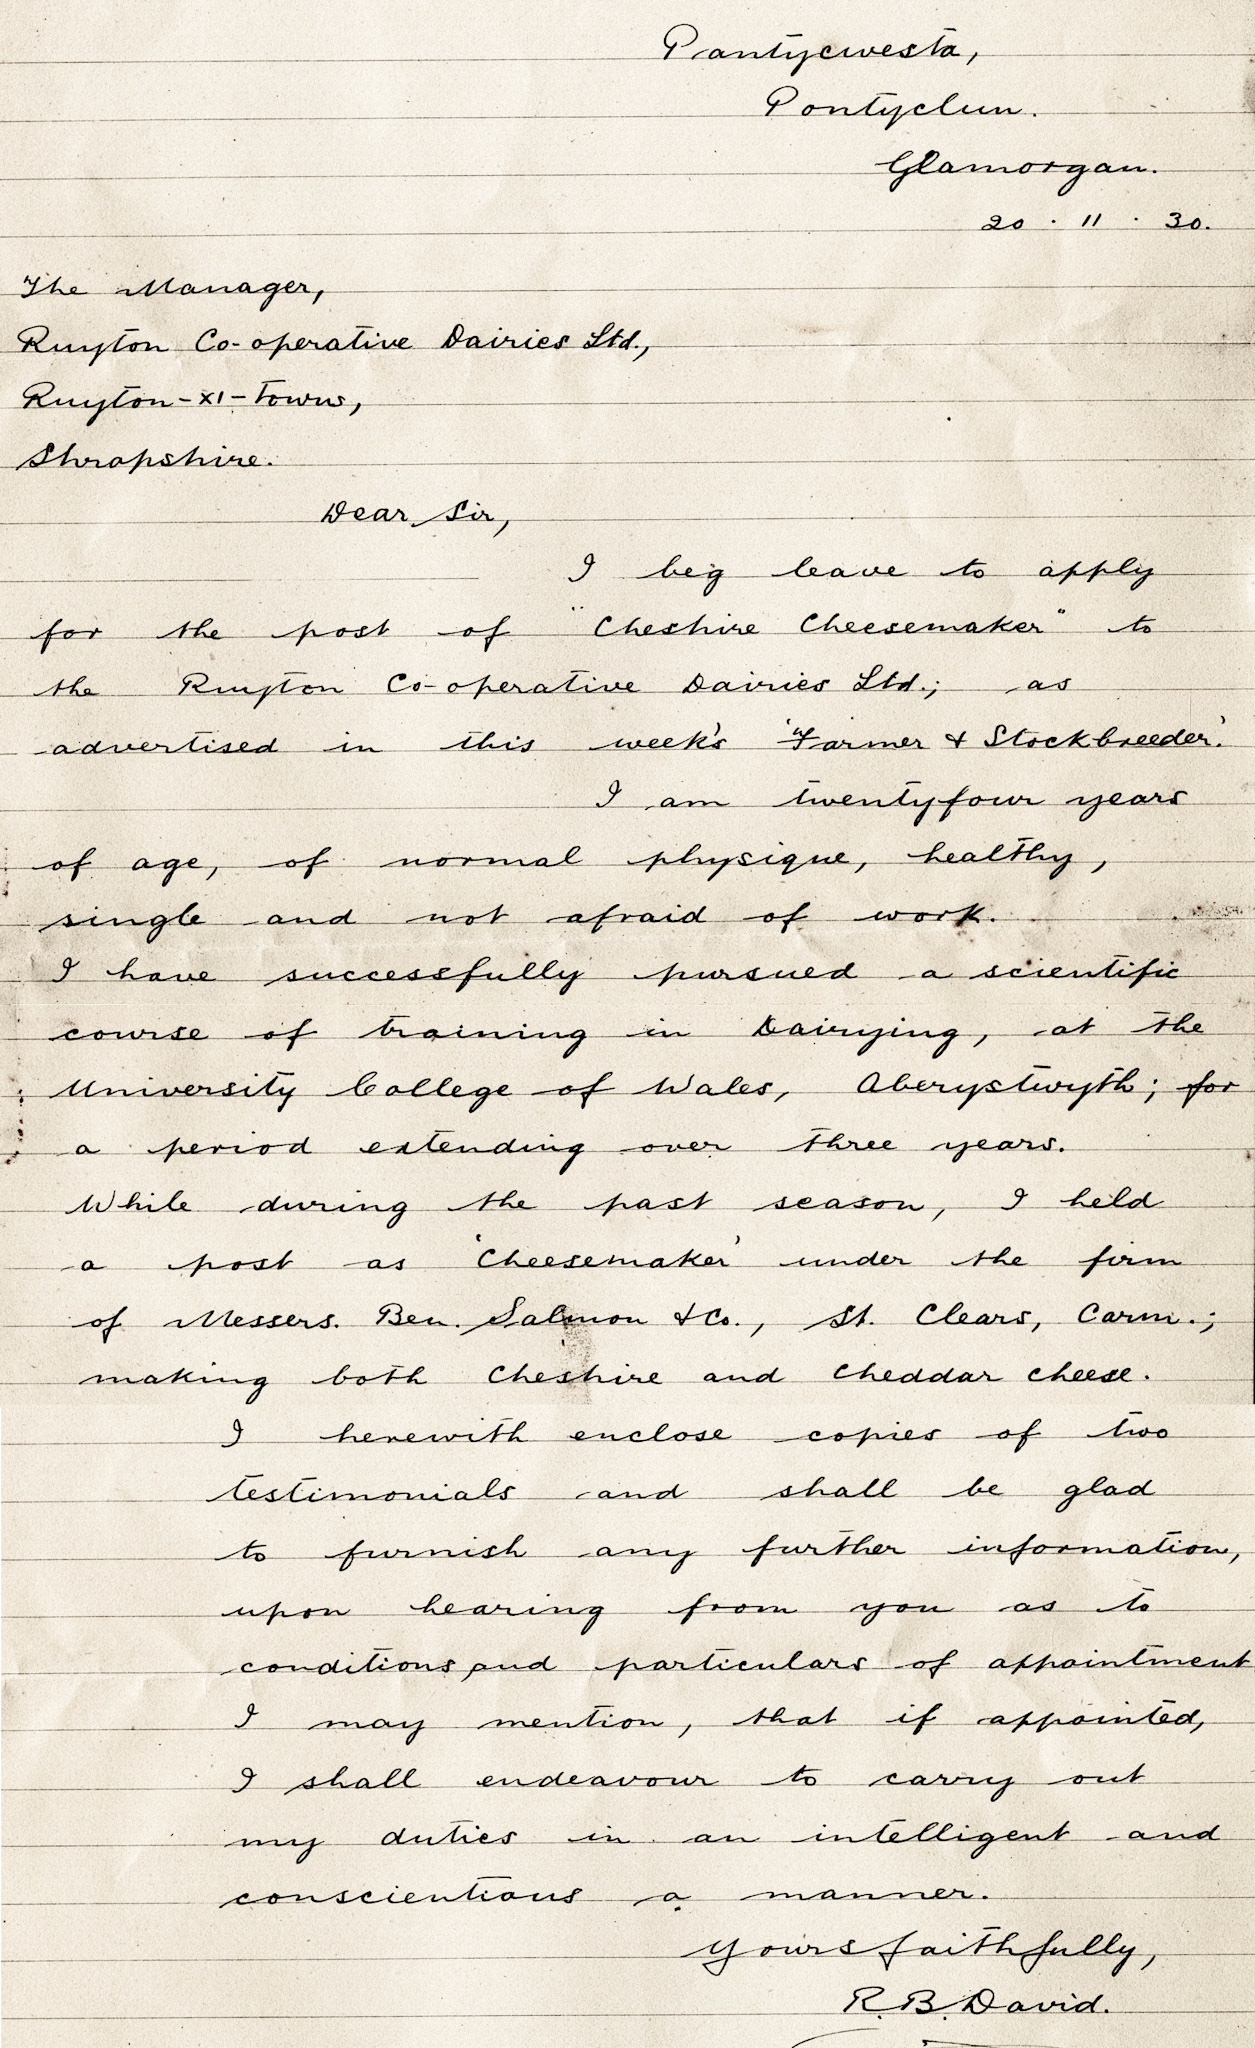 Pantycwesta,
Pontyclun.
Glamorgan.
20 . 11 . 30.
The Manager,
Ruyton Co-operative Dairies Ltd.,
Ruyton-XI-Towns,
Shropshire.
Dear Sir,
I beg leave to apply
for the post of "Cheshire Cheesemaker" to
the Ruyton Co-operative Dairies Ltd.; as
advertised in this week's 'Farmer & Stockbreeder.'
I am twentyfour years
of age, of normal physique, healthy,
single and not afraid of work.
I have successfully pursued a scientific
course of training in Dairying, at the
University College of Wales, Aberystwyth; for
a period extending over three years.
While during the past season, I held
a post as 'Cheesemaker' under the firm
of Messers. Ben. Salmon & Co., St. Clears, Carm.;
making both Cheshire and Cheddar cheese.
I herewith enclose copies of two
testimonials and shall be glad
to furnish any further information,
upon hearing from you as to
conditions and particulars of appointment
I may mention, that if appointed,
I shall endeavour to carry out
my duties in an intelligent and
conscientious a manner.
Yours faithfully,
R. B. David.